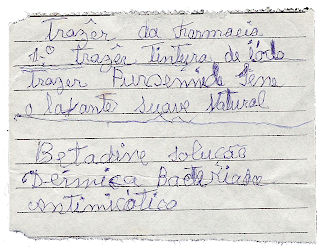 Trazêr da Farmacia
1.º trazêr tintura de iodo
trazer Pursennide tene
o laxante suave Natural
Betadine solução
Dérmica Bacteriana
antimicótico